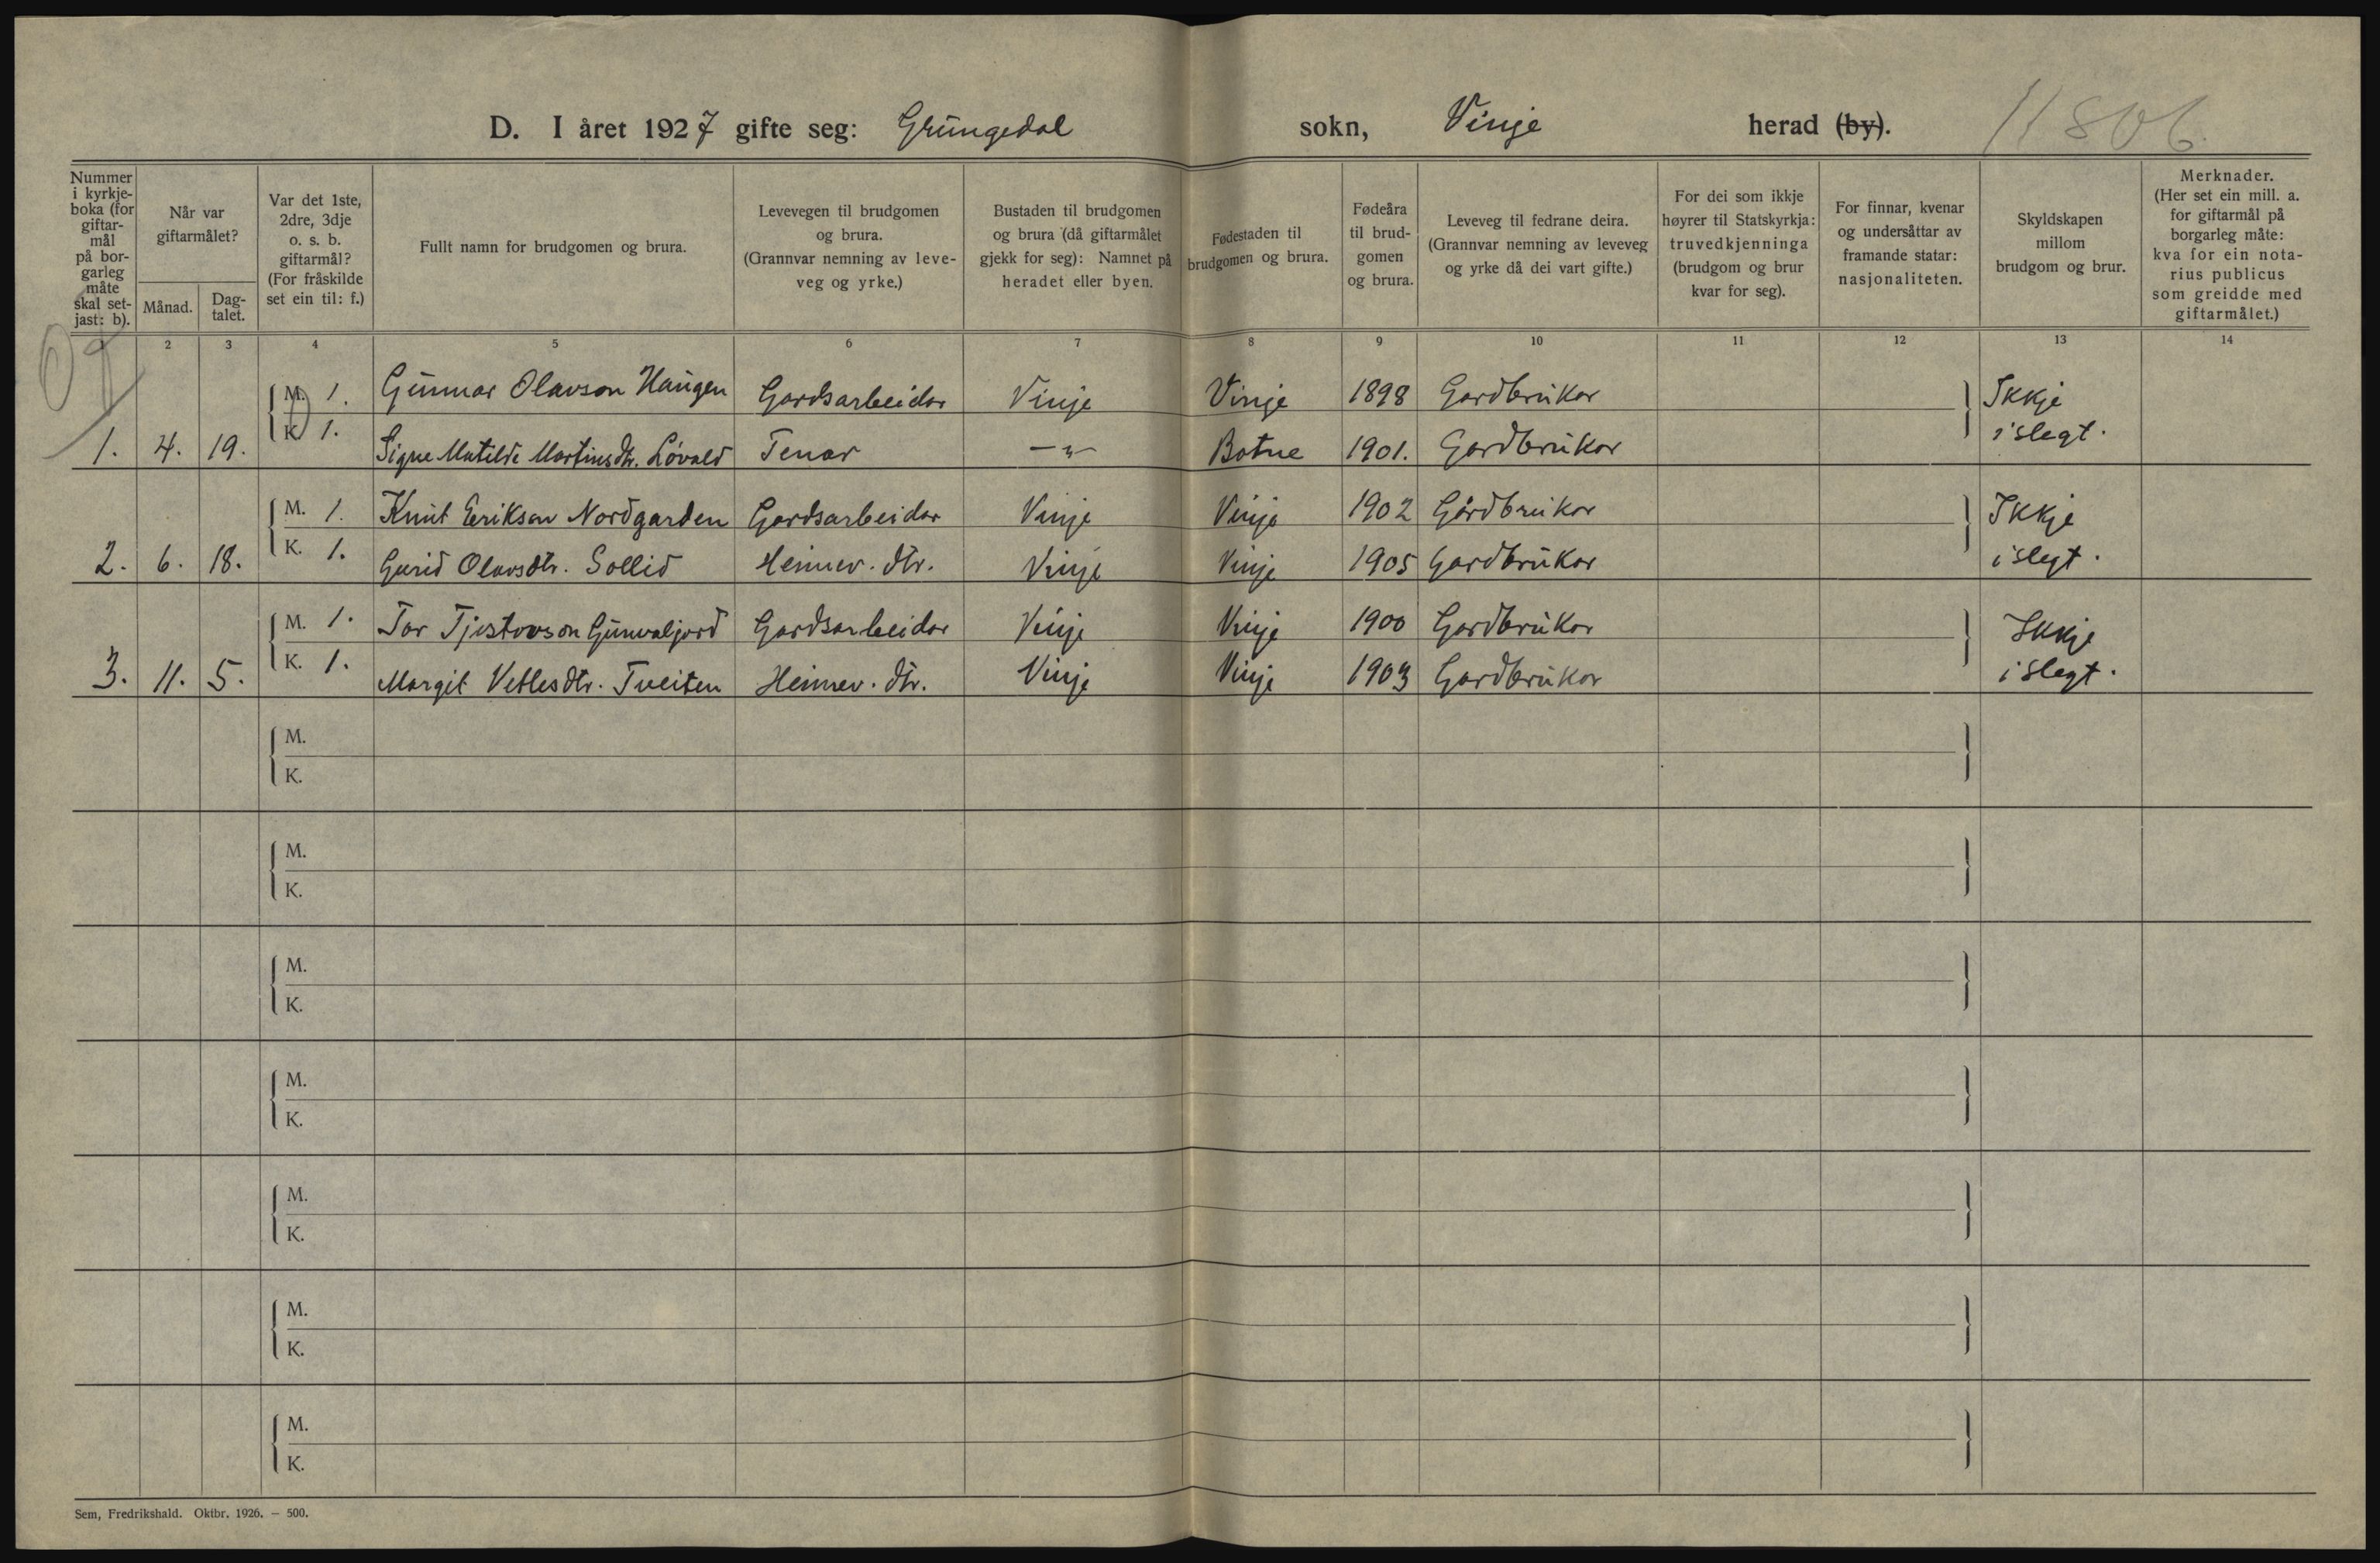 D. I året 1927 gifte seg: Grungedal sokn, Vinje herad (by). 11806
Nummer i kyrkje-boka (for giftar-mål på bor-garleg måte skal set-jast: b).
Når var giftarmålet?
Månad.
Dag-talet.
Var det 1ste, 2dre, 3dje o. s. b. giftarmål? (For fråskilde set ein til: f.)
Fullt namn for brudgomen og brura.
Levevegen til brudgomen og brura. (Grannvar nemning av leve-veg og yrke.)
Bustaden til brudgomen og brura (då giftarmålet gjekk for seg): Namnet på heradet eller byen.
Fødestaden til brudgomen og brura.
Fødeåra til brud-gomen og brura.
Leveveg til fedrane deira. (Grannvar nemning av leveveg og yrke då dei vart gifte.)
For dei som ikkje høyrer til Statskyrkja: truvedkjenninga (brudgom og brur kvar for seg).
For finnar, kvenar og undersåttar av framande statar: nasjonaliteten.
Skyldskapen millom brudgom og brur.
Merknader. (Her set ein mill. a. for giftarmål på borgarleg måte: kva for ein nota-rius publicus som greidde med giftarmålet.)
2 3 4 5 6 7 8 9 10 11 12 13 14
M. 1. Gunnar Olavson Haugen Gardsarbeidar Vinje Vinje 1898 Gardbrukar Ikkje
1. 4. 19. K. 1. Signe Matilde Martinsdtr. Lövald Tenar —"— Botne 1901. Gardbrukar i slegt.
M. 1. Knut Eerikson Nordgarden Gardsarbeidar Vinje Vinje 1902 Gardbrukar Ikkje
2. 6. 18. K. 1. Gurid Olavsdtr. Sollid Heimev. dtr. Vinje Vinje 1905 Gardbrukar i slegt.
M. 1. Tor Tjostovson Gunvaljord Gardsarbeidar Vinje Vinje 1900 Gardbrukar Ikkje
3. 11. 5. K. 1. Margit Vetlesdtr. Tveiten Heimev. dtr. Vinje Vinje 1903 Gardbrukar i slegt.
M.
K.
M.
K.
M.
K.
M.
K.
M.
K.
M.
K.
M.
K.
Sem, Fredrikshald. Oktbr. 1926. — 500.